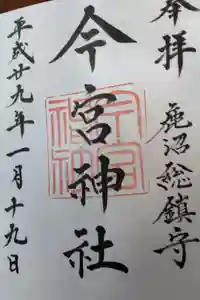 奉拝
鹿沼総鎮守
今宮神社
平成廿九年一月十九日